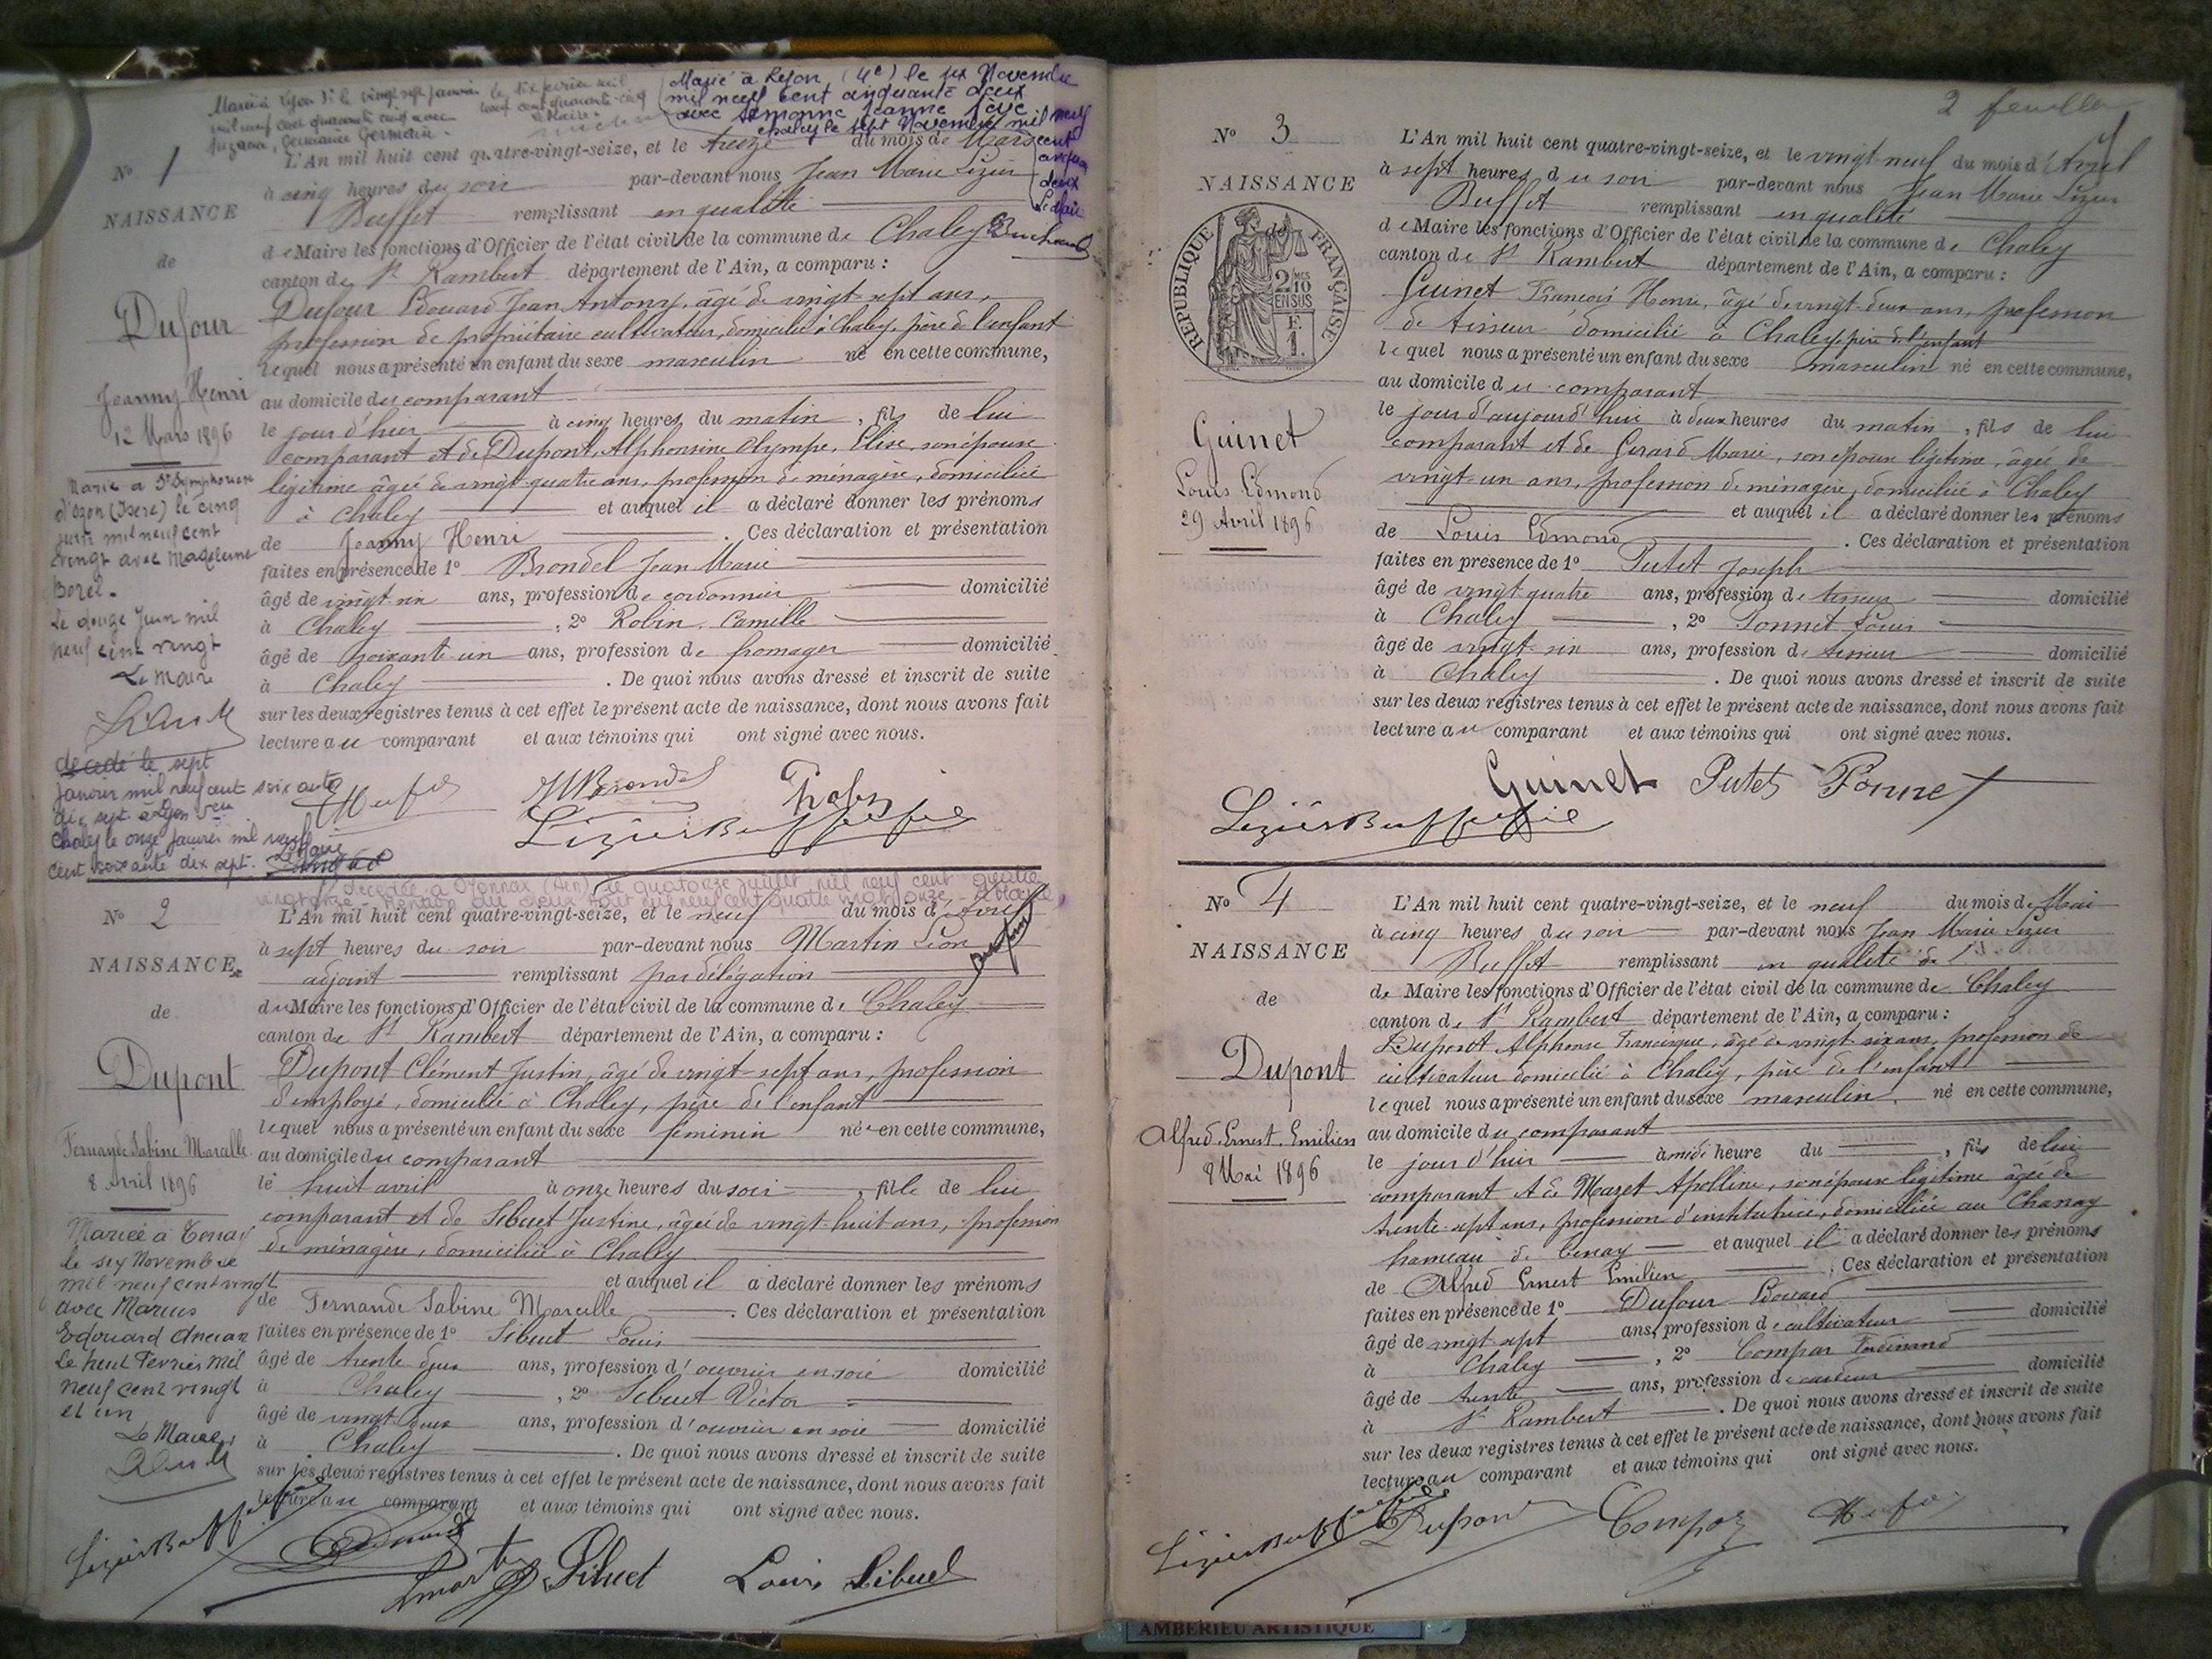 Marié à Lyon (4e) le six Novembre
mil neuf cent cinquante deux
avec Simonne Jeanne
Chaley le sept Novembre mil neuf
cent
deux
Le Maire
No 1
NAISSANCE
de
Dufour
Jeanny Henri
12 Mars 1896
Marié à St Symphorien
d'Ozon (Isère) le cinq
juin mil neuf cent
vingt avec Madeleine
Borel.
Le douze Juin mil
neuf cent vingt
Le Maire
décédé le sept
janvier mil neuf cent soixante
dix sept à Lyon
Chaley le onze janvier mil neuf
cent soixante dix sept.
L'An mil huit cent quatre-vingt-seize, et le treize du mois de Mars
à cinq heures du soir par-devant nous Jean Marie Lézier
Buffet remplissant en qualité
de Maire les fonctions d'Officier de l'état civil de la commune de Chaley
canton de St Rambert département de l'Ain, a comparu :
Dufour Edouard Jean Antony, âgé de vingt-sept ans,
profession de propriétaire cultivateur, domicilié à Chaley, père de l'enfant
lequel nous a présenté un enfant du sexe masculin né en cette commune,
au domicile du comparant
le jour d'hier à cinq heures du matin, fils de lui
comparant et de Dupont, Alphonsine Olympe, Elise, son épouse
légitime âgée de vingt-quatre ans, profession de ménagère, domiciliée
à Chaley et auquel il a déclaré donner les prénoms
de Jeanny Henri . Ces déclaration et présentation
faites en présence de 1o Brondel Jean Marie
âgé de vingt six ans, profession de cordonnier domicilié
à Chaley , 2o Robin, Camille
âgé de soixante un ans, profession de fromager domicilié
à Chaley . De quoi nous avons dressé et inscrit de suite
sur les deux registres tenus à cet effet le présent acte de naissance, dont nous avons fait
lecture au comparant et aux témoins qui ont signé avec nous.
No 2
NAISSANCE
de
Dupont
Fernande Sabine Marcelle
8 Avril 1896
Mariée à Tenay
le six Novembre
mil neuf cent vingt
avec Marius
Edouard
le huit Février mil
neuf cent vingt
et un
Le Maire
décédée à Oyonnax (Ain) le quatorze juillet mil neuf cent quatre
L'An mil huit cent quatre-vingt-seize, et le neuf du mois d'Avril
à sept heures du soir par-devant nous Martin Léon
adjoint remplissant par délégation
du Maire les fonctions d'Officier de l'état civil de la commune de Chaley
canton de St Rambert département de l'Ain, a comparu :
Dupont Clément Justin, âgé de vingt-sept ans, profession
d'employé, domicilié à Chaley, père de l'enfant
lequel nous a présenté un enfant du sexe féminin née en cette commune,
au domicile du comparant
le huit avril à onze heures du soir , fille de lui
comparant et de Sibuet Justine, âgée de vingt-huit ans, profession
de ménagère, domiciliée à Chaley
et auquel il a déclaré donner les prénoms
de Fernande Sabine Marcelle . Ces déclaration et présentation
faites en présence de 1o Sibuet Louis
âgé de trente deux ans, profession d'ouvrier en soie domicilié
à Chaley , 2o Sibuet Victor
âgé de vingt deux ans, profession d'ouvrier en soie domicilié
à Chaley . De quoi nous avons dressé et inscrit de suite
sur les deux registres tenus à cet effet le présent acte de naissance, dont nous avons fait
lecture au comparant et aux témoins qui ont signé avec nous.
Sibuet Louis Sibuet
2 feuillet
No 3
NAISSANCE
de
RÉPUBLIQUE FRANÇAISE
2/10 EN SUS
F. 1.
Guinet
Louis Edmond
29 Avril 1896
L'An mil huit cent quatre-vingt-seize, et le vingt neuf du mois d'Avril
à sept heures du soir par-devant nous Jean Marie Lézier
Buffet remplissant en qualité
de Maire les fonctions d'Officier de l'état civil de la commune de Chaley
canton de St Rambert département de l'Ain, a comparu :
Guinet François Henri, âgé de vingt-deux ans, profession
de tisseur domicilié à Chaley, père de l'enfant
lequel nous a présenté un enfant du sexe masculin né en cette commune,
au domicile du comparant
le jour d'aujourd'hui à deux heures du matin , fils de lui
comparant et de Girard Marie, son épouse légitime, âgée de
vingt-un ans, profession de ménagère, domiciliée à Chaley
et auquel il a déclaré donner les prénoms
de Louis Edmond . Ces déclaration et présentation
faites en présence de 1o Putet Joseph
âgé de vingt quatre ans, profession de tisseur domicilié
à Chaley , 2o Ponnet Louis
âgé de vingt-six ans, profession de tisseur domicilié
à Chaley . De quoi nous avons dressé et inscrit de suite
sur les deux registres tenus à cet effet le présent acte de naissance, dont nous avons fait
lecture au comparant et aux témoins qui ont signé avec nous.
Guinet Putet Ponnet
No 4
NAISSANCE
de
Dupont
Alfred Ernest Emilien
8 Mai 1896
L'An mil huit cent quatre-vingt-seize, et le neuf du mois de Mai
à cinq heures du soir par-devant nous Jean Marie Lézier
Buffet remplissant en qualité de
de Maire les fonctions d'Officier de l'état civil de la commune de Chaley
canton de St Rambert département de l'Ain, a comparu :
Dupont Alphonse Francisque, âgé de vingt six ans, profession de
cultivateur domicilié à Chaley, père de l'enfant
lequel nous a présenté un enfant du sexe masculin né en cette commune,
au domicile du comparant
le jour d'hier à midi heure du , fils de lui
comparant et de Mazet Apolline, son épouse légitime âgée de
trente-sept ans, profession d'institutrice, domiciliée au Chanay
hameau de Tenay et auquel il a déclaré donner les prénoms
de Alfred Ernest Emilien . Ces déclaration et présentation
faites en présence de 1o Dufour Edouard
âgé de vingt sept ans, profession de cultivateur domicilié
à Chaley , 2o Compar Ferdinand
âgé de trente ans, profession de domicilié
à St Rambert . De quoi nous avons dressé et inscrit de suite
sur les deux registres tenus à cet effet le présent acte de naissance, dont nous avons fait
lecture au comparant et aux témoins qui ont signé avec nous.
Dupont
AMBERIEU ARTISTIQUE